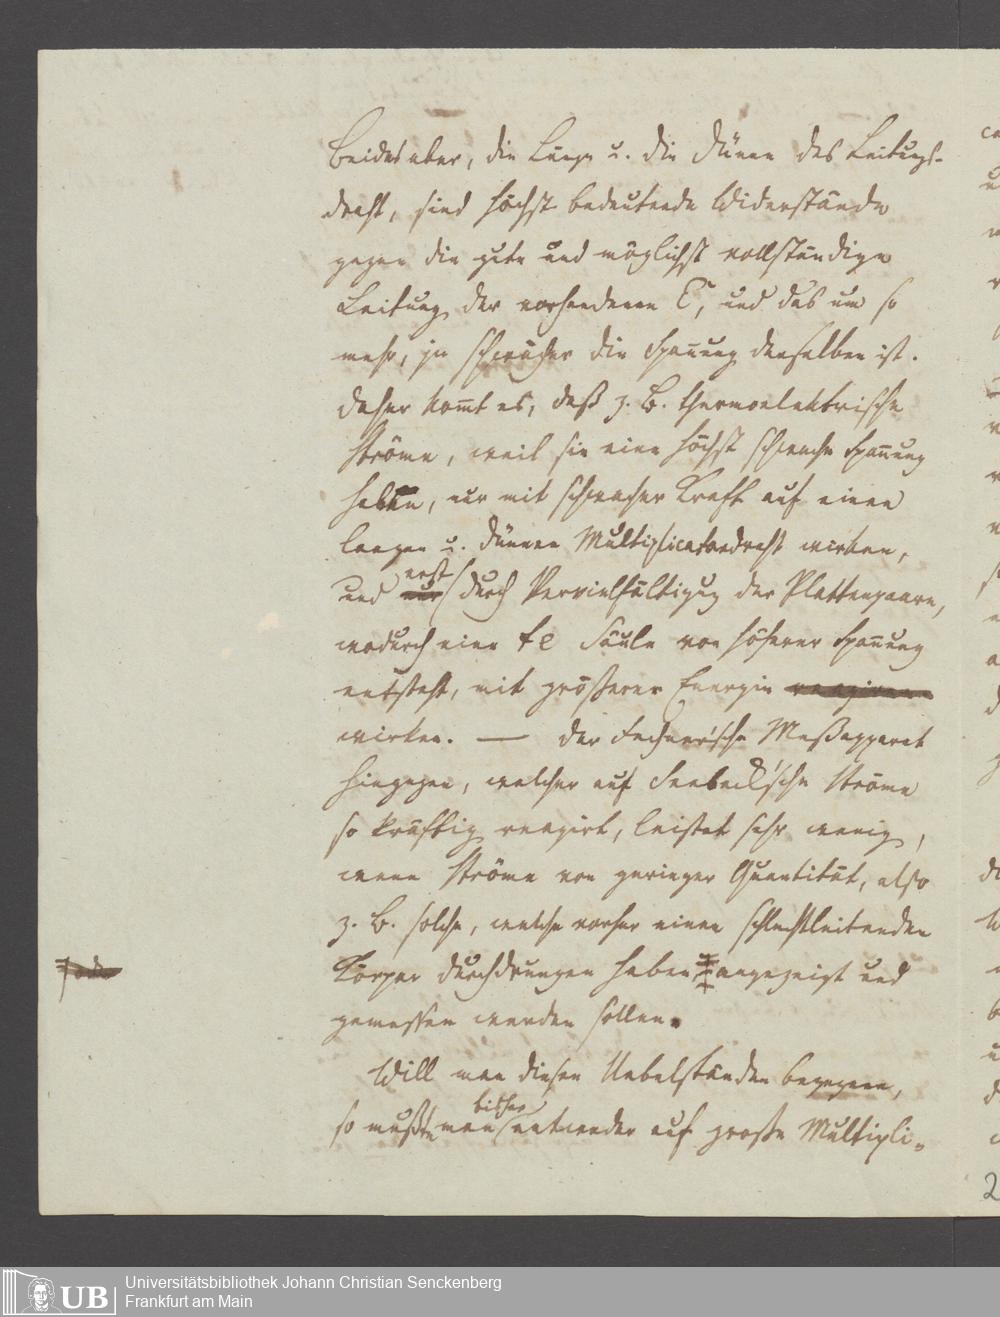 Beides aber, die Länge u. die Dünne des Leitungs-
draht, sind höchst bedeutende Widerstände
gegen die gute und möglichst vollständige
Leitung der vorhandenen E, und das um so
mehr, je schwächer die Span̄ung derselben ist.
Daher kom̄t es, daß z. B. thermoelektrische
Ströme, weil sie eine höchst schwache Span̄ung
haben, nur mit schwacher Kraft auf einen
langen u. dünnen Multiplicatordraht wirken,
und erst durch Vervielfältigung der Plattenpaare,
wodurch eine Säule von höherer Span̄ung
entsteht, mit größerer Energie reagiren
wirken. — Der Fechner'sche Meßapparat
hingegen, welcher auf Seebeck'sche Ströme
so kräftig reagirt, leistet sehr wenig,
wenn Ströme von geringer Quantität, also
z. B. solche, welche vorher einen schlechtleitenden
Körper durchdrungen haben angezeigt und
gemessen werden sollen.
Will man diesen Uebelständen begegnen,
so mußte man bisher entweder auf große Multipli-
2
UB
Universitätsbibliothek Johann Christian Senckenberg
Frankfurt am Main